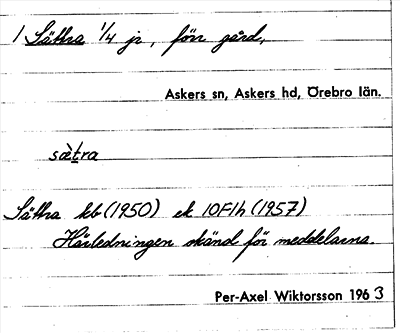 1 Sättra 1/4 jr, förr gård,
Askers sn, Askers hd, Örebro län.
sæ̀tra
Sättra kb (1950) ek 10F1h (1957)
Härledningen okänd för meddelarna.
Per-Axel Wiktorsson 1963